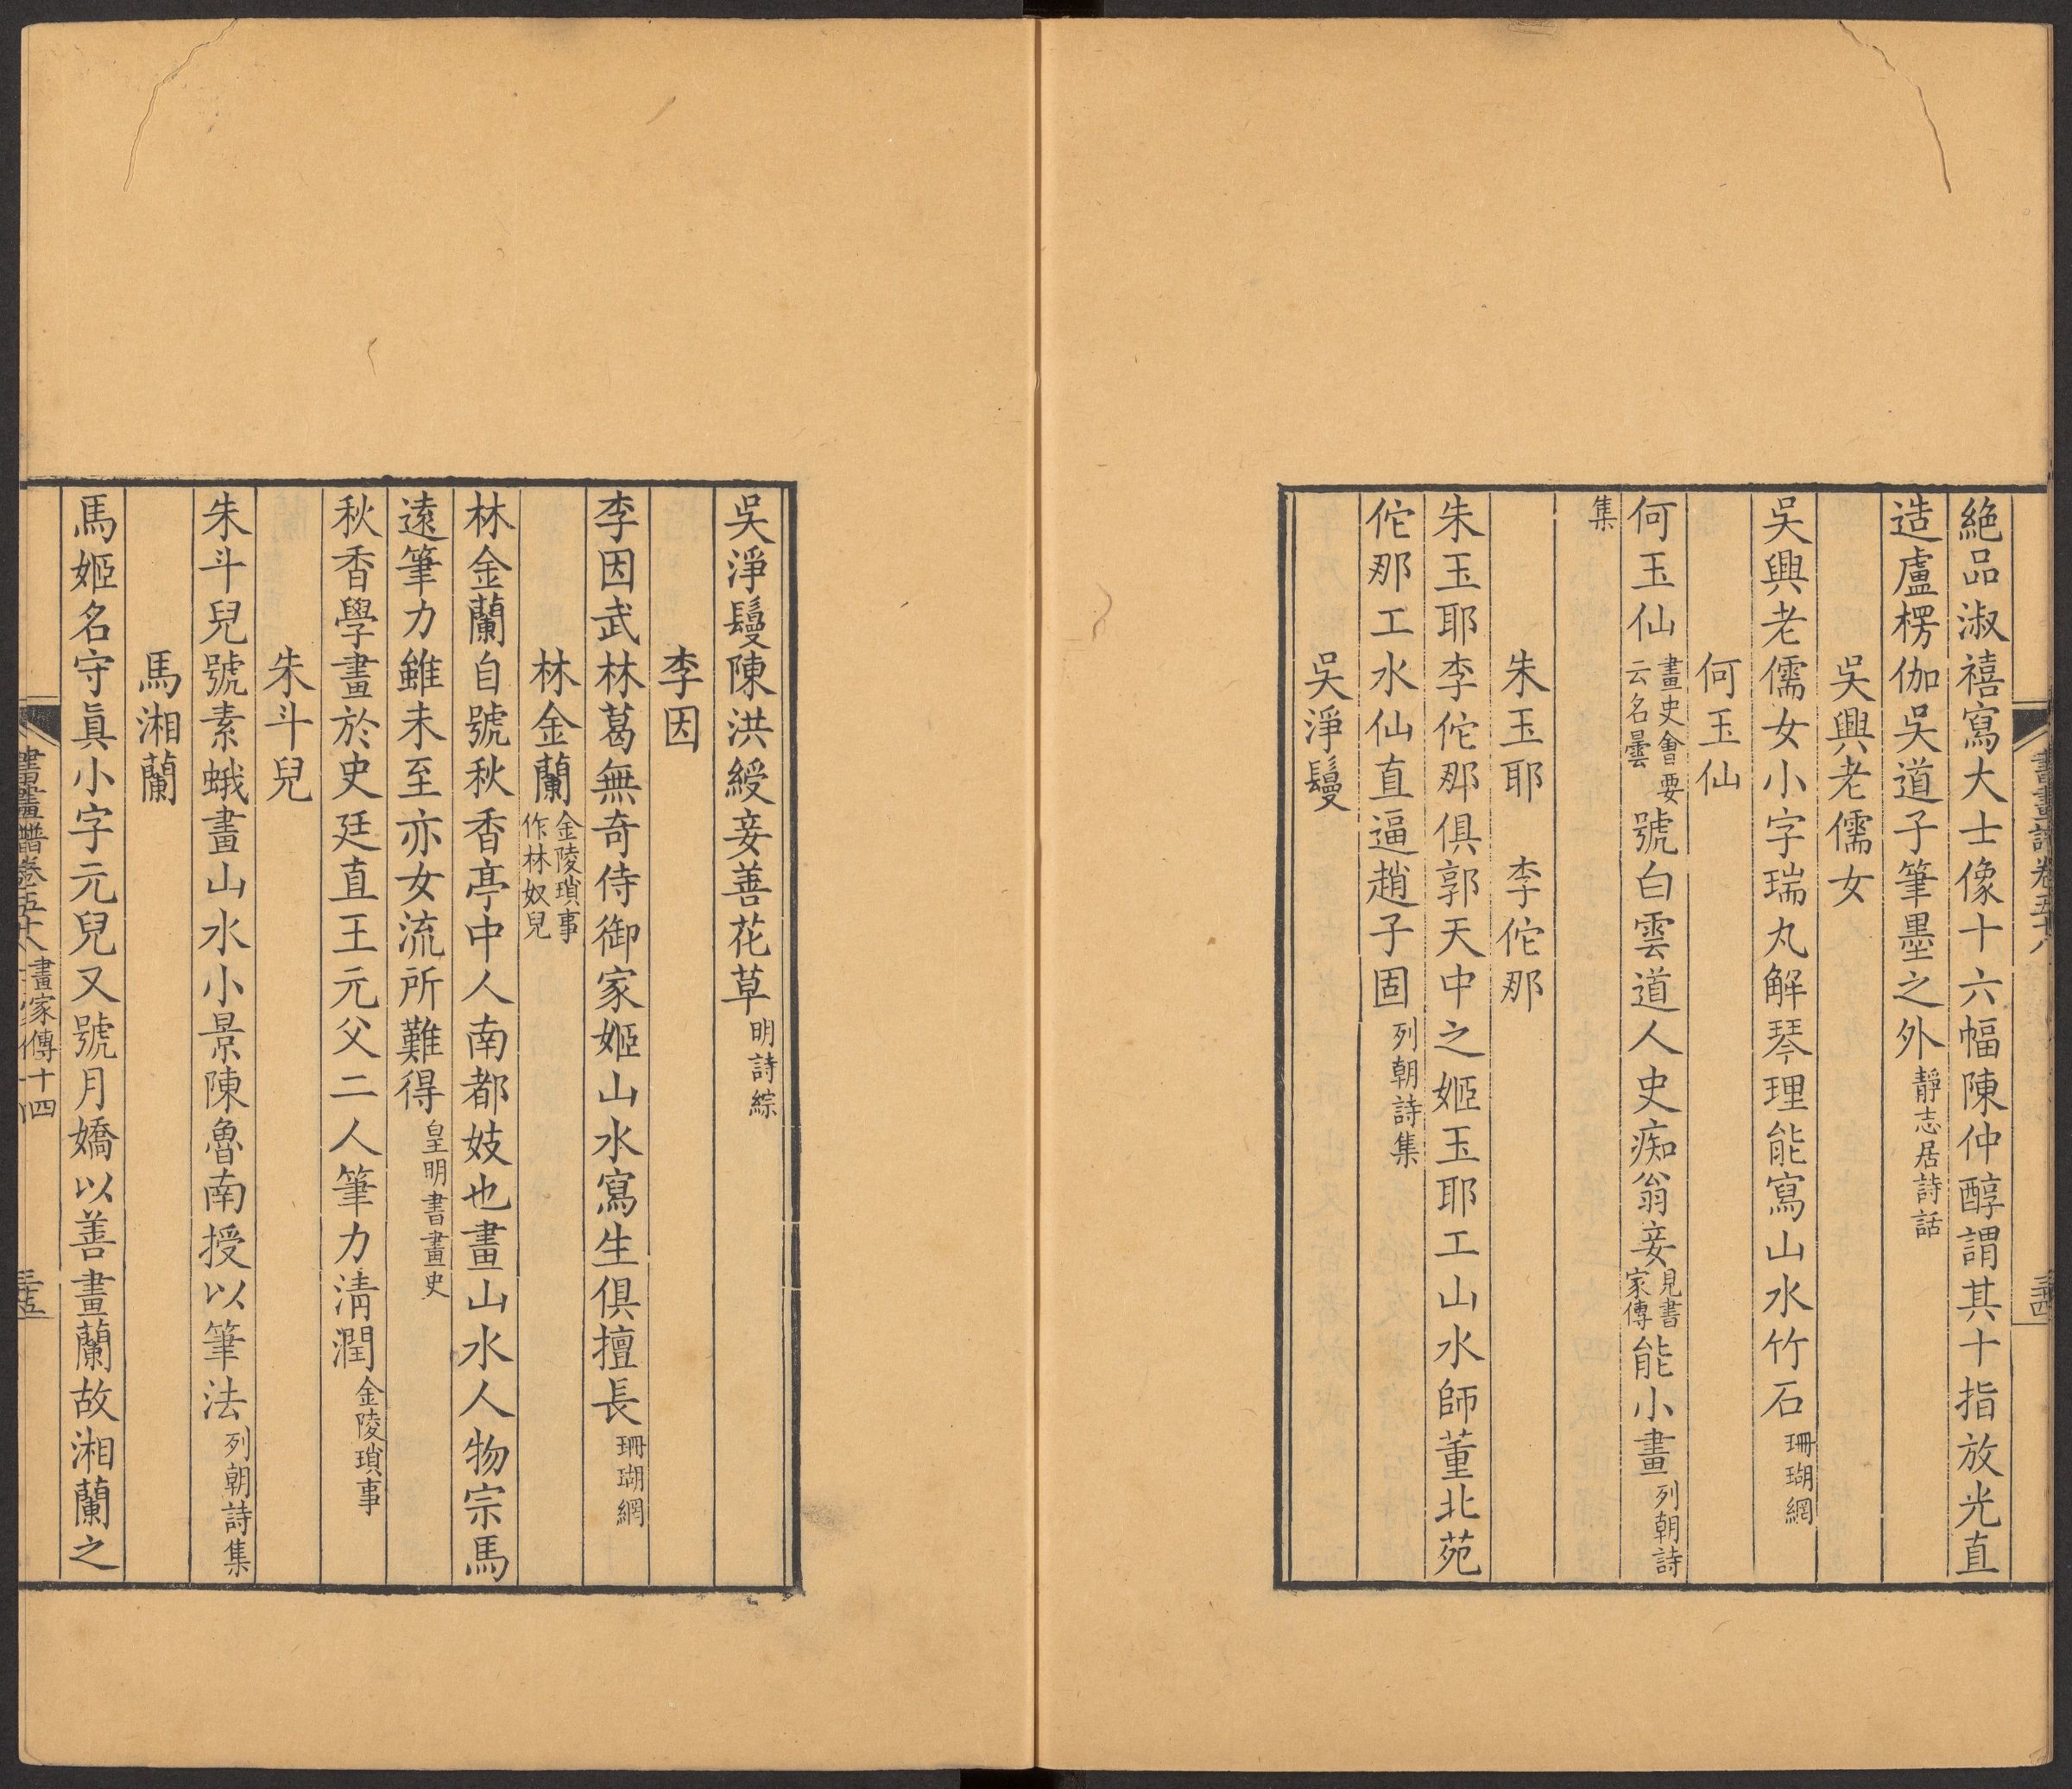 絶品淑禧寫大士像十六幅陳仲醇謂其十指放光直
造盧楞伽吳道子筆墨之外靜志居詩話
吳興老儒女
吳興老儒女小字瑞丸解琴理能寫山水竹石珊瑚網
何玉仙
何玉仙畫史會要云名曇號白雲道人史痴翁妾見書家傳能小畫列朝詩
集
朱玉耶 李佗那
朱玉耶李佗那俱郭天中之姬玉耶工山水師董北苑
佗那工水仙直逼趙子固列朝詩集
吳淨鬘
吳淨鬘陳洪綬妾善花草明詩綜
李因
李因武林葛無奇侍御家姬山水寫生俱擅長珊瑚網
林金蘭金陵瑣事作林奴兒
林金蘭自號秋香亭中人南都妓也畫山水人物宗馬
遠筆力雖未至亦女流所難得皇明書畫史
秋香學畫於史廷直王元父二人筆力清潤金陵瑣事
朱斗兒
朱斗兒號素蛾畫山水小景陳魯南授以筆法列朝詩集
馬湘蘭
馬姬名守眞小字元兒又號月嬌以善畫蘭故湘蘭之
書畫譜卷五十八 畫家傳十四 三十五